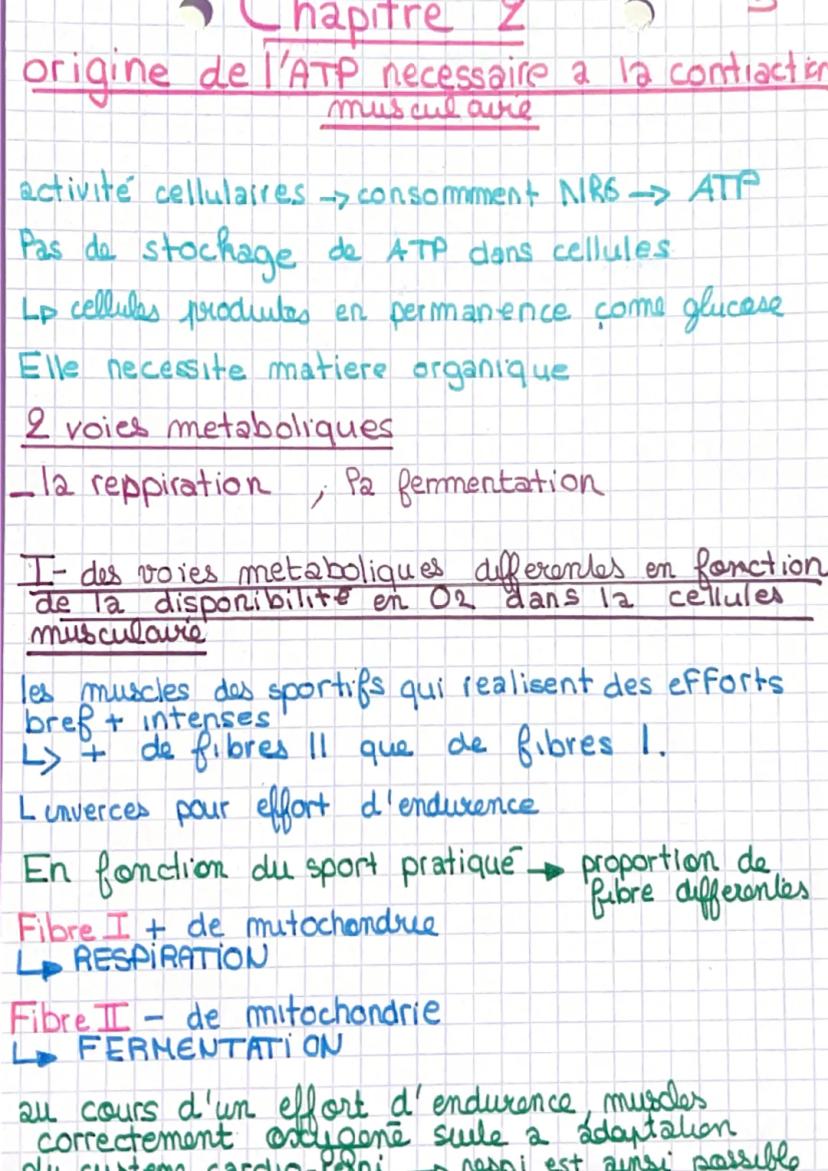 Chapitre 2
origine de l'ATP necessaire a la contraction
musculaire
activité cellulaires → consomment NRG → ATP
Pas de stockage de ATP dans cellules
↳ cellules produites en permanence come glucose
Elle necessite matiere organique
2 voies metaboliques
- la reppiration , la fermentation
I- des voies metaboliques differentes en fonction
de la disponibilité en O2 dans la cellules
musculaire
les muscles des sportifs qui realisent des efforts
bref + intenses
↳ + de fibres II que de fibres I.
L inverces pour effort d'endurence
En fonction du sport pratiqué → proportion de
fibre differentes
Fibre I + de mitochondrie
↳ RESPIRATION
Fibre II - de mitochondrie
↳ FERMENTATION
au cours d'un effort d'endurence, muscles
correctement oxygené suite a adaptation
du systeme cardio-respi → respi est ainsi possible